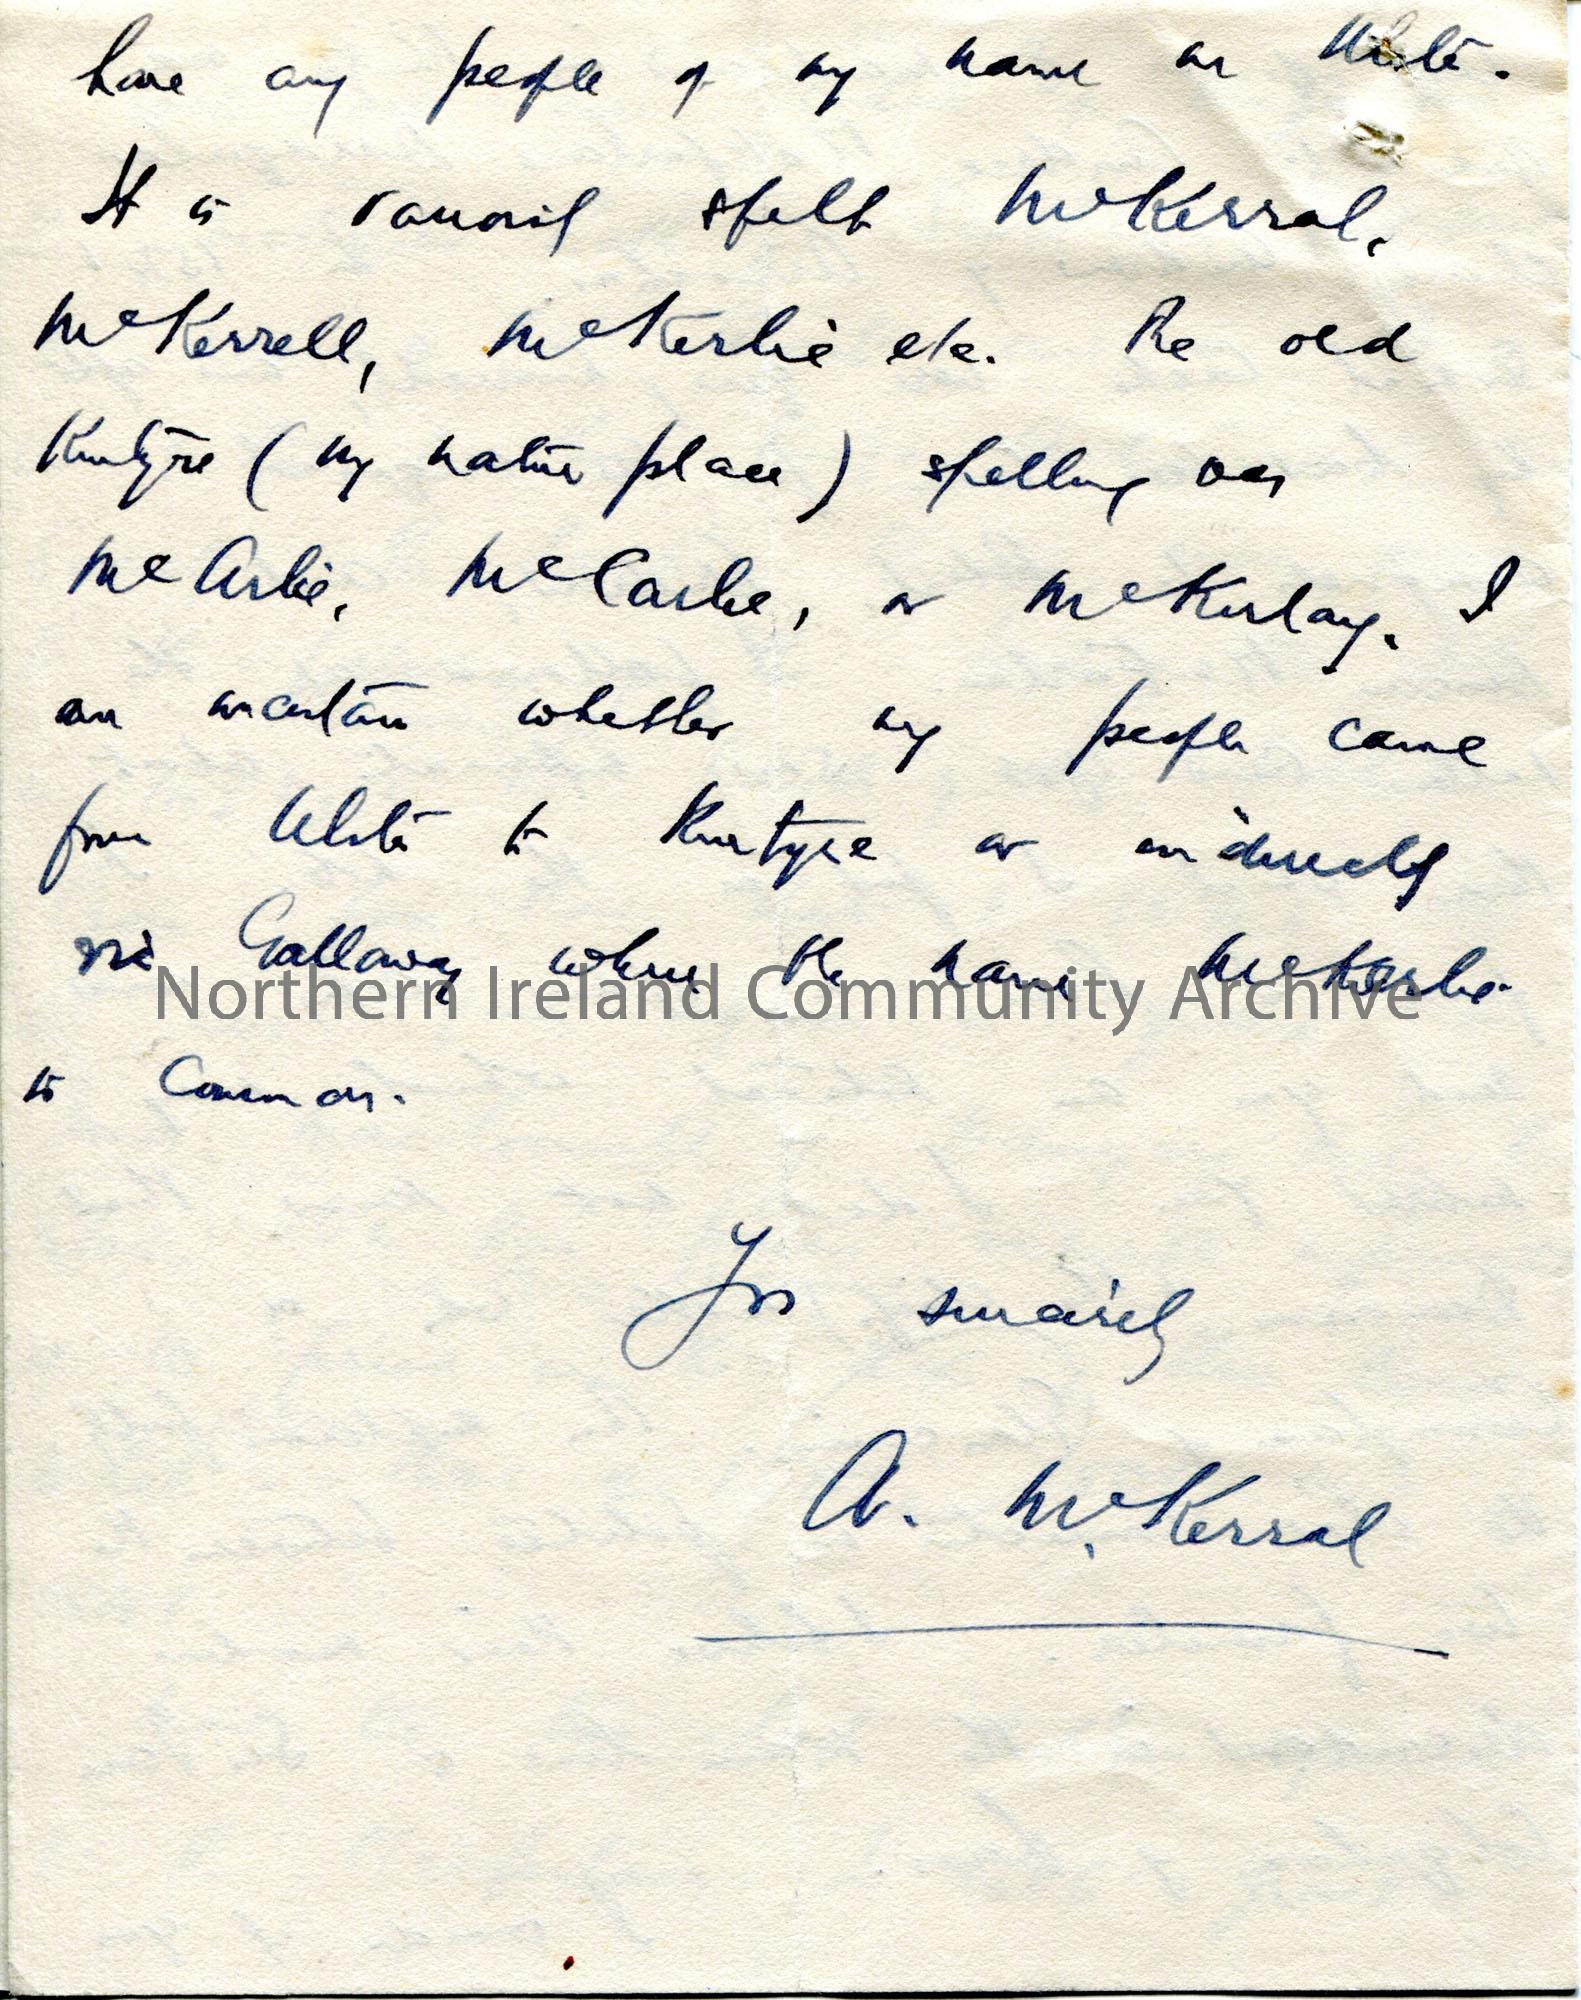 have any people of my name in Ulster.
It is variously spelt McKerral,
McKerrell, McKerlie etc. The old
Kintyre (my native place) spelling was
McArlie, McCarlie, or McKerlay. I
am uncertain whether my people came
from Ulster to Kintyre or indirectly
via Galloway where the name McKerlie
is common.
Northern Ireland Community Archive
Yrs sincerely
A. McKerral